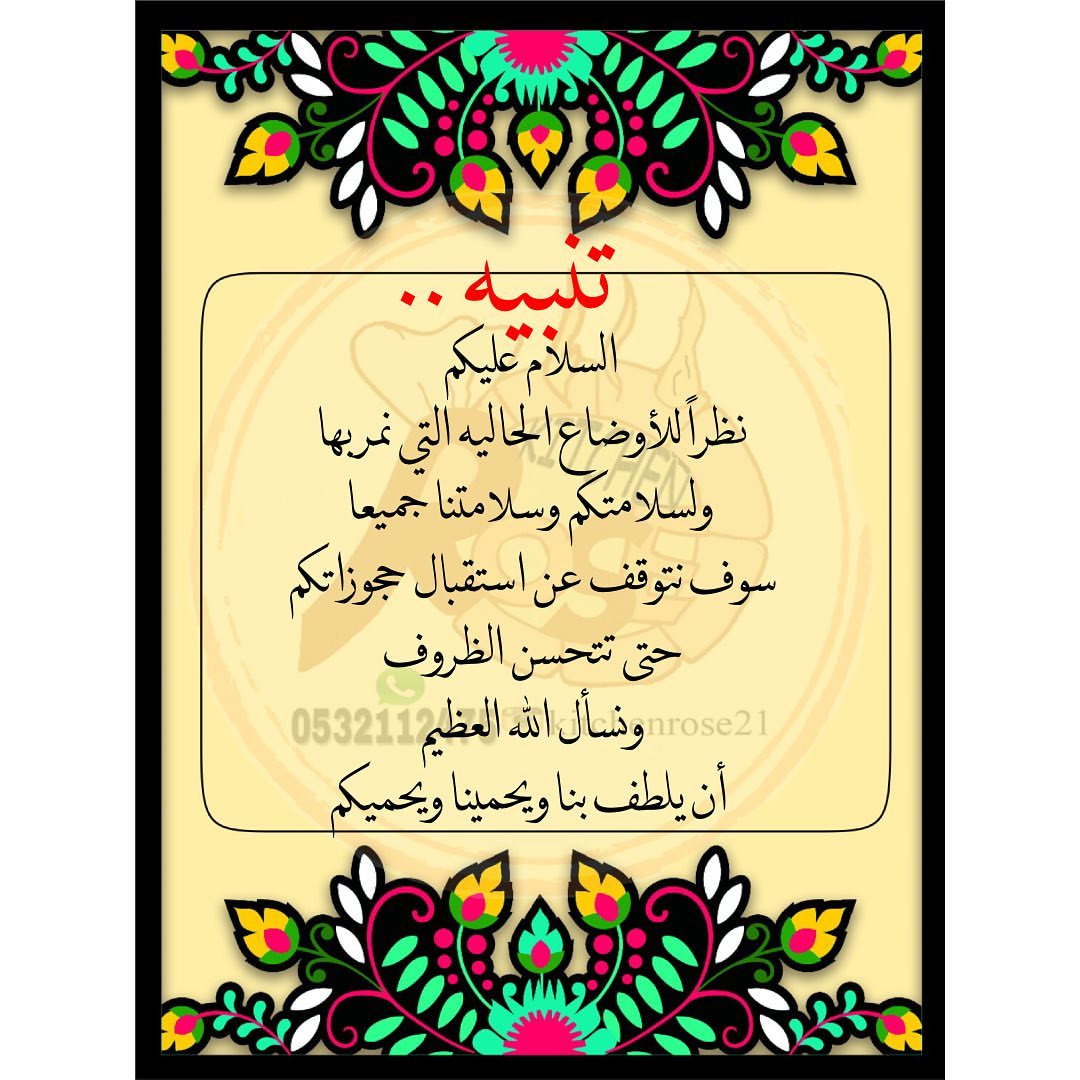 تنبيه ..
السلام عليكم
نظراً للأوضاع الحاليه التي نمر بها
KITCHEN
ولسلامتكم وسلامتنا جميعا
Rose
سوف نتوقف عن استقبال حجوزاتكم
حتى تتحسن الظروف
ونسأل الله العظيم
kitchenrose21
أن يلطف بنا ويحمينا ويحميكم